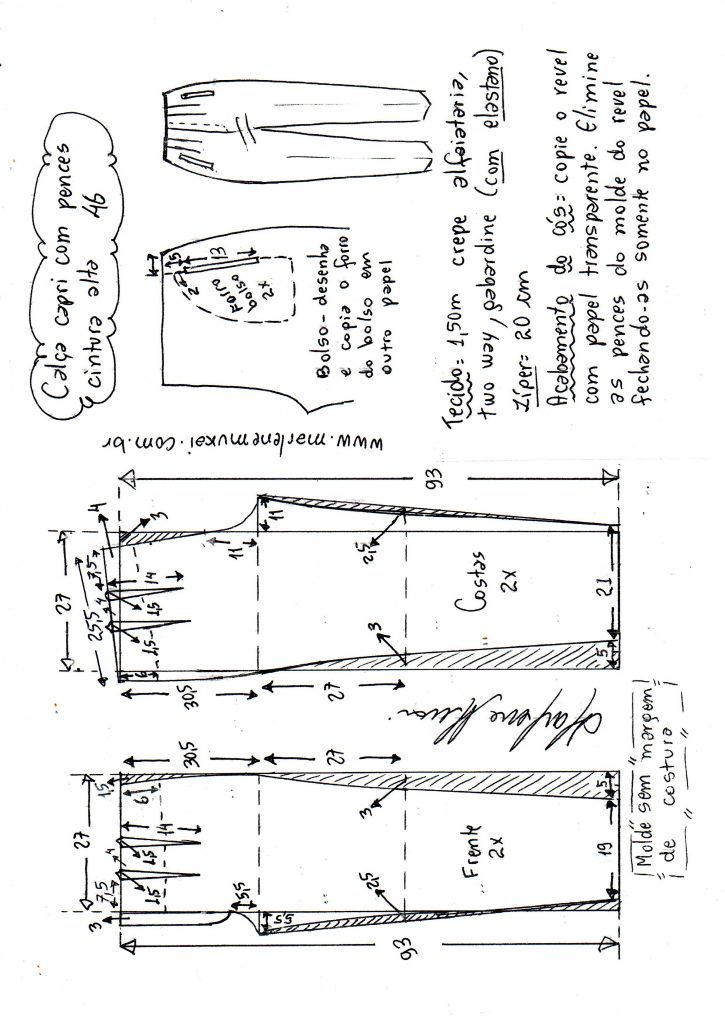 Calça capri com pences
cintura alta 46
5
13
22
Forro
bolso
2x
Bolso - desenha
e copia o forro
do bolso em
outro papel
Tecido = 1,50m crepe alfaiataria,
two way, gabardine (com elastano)
Zíper = 20 cm
Acabamento do cós = copie o revel
com papel transparente. Elimine
as pences do molde do revel
fechando-as somente no papel.
www.marlenemukai.com.br
93
27
30,5
27
3
7,5
4
14
1,5
1,5
6
1,5
5,5
5,5
2,5
3
Frente
2x
19
5
93
27
25,5
30,5
27
4
3
7,5
4
14
1,5
1,5
6
11
11
2,5
3
Costas
2x
21
5
Molde sem margem
de costura